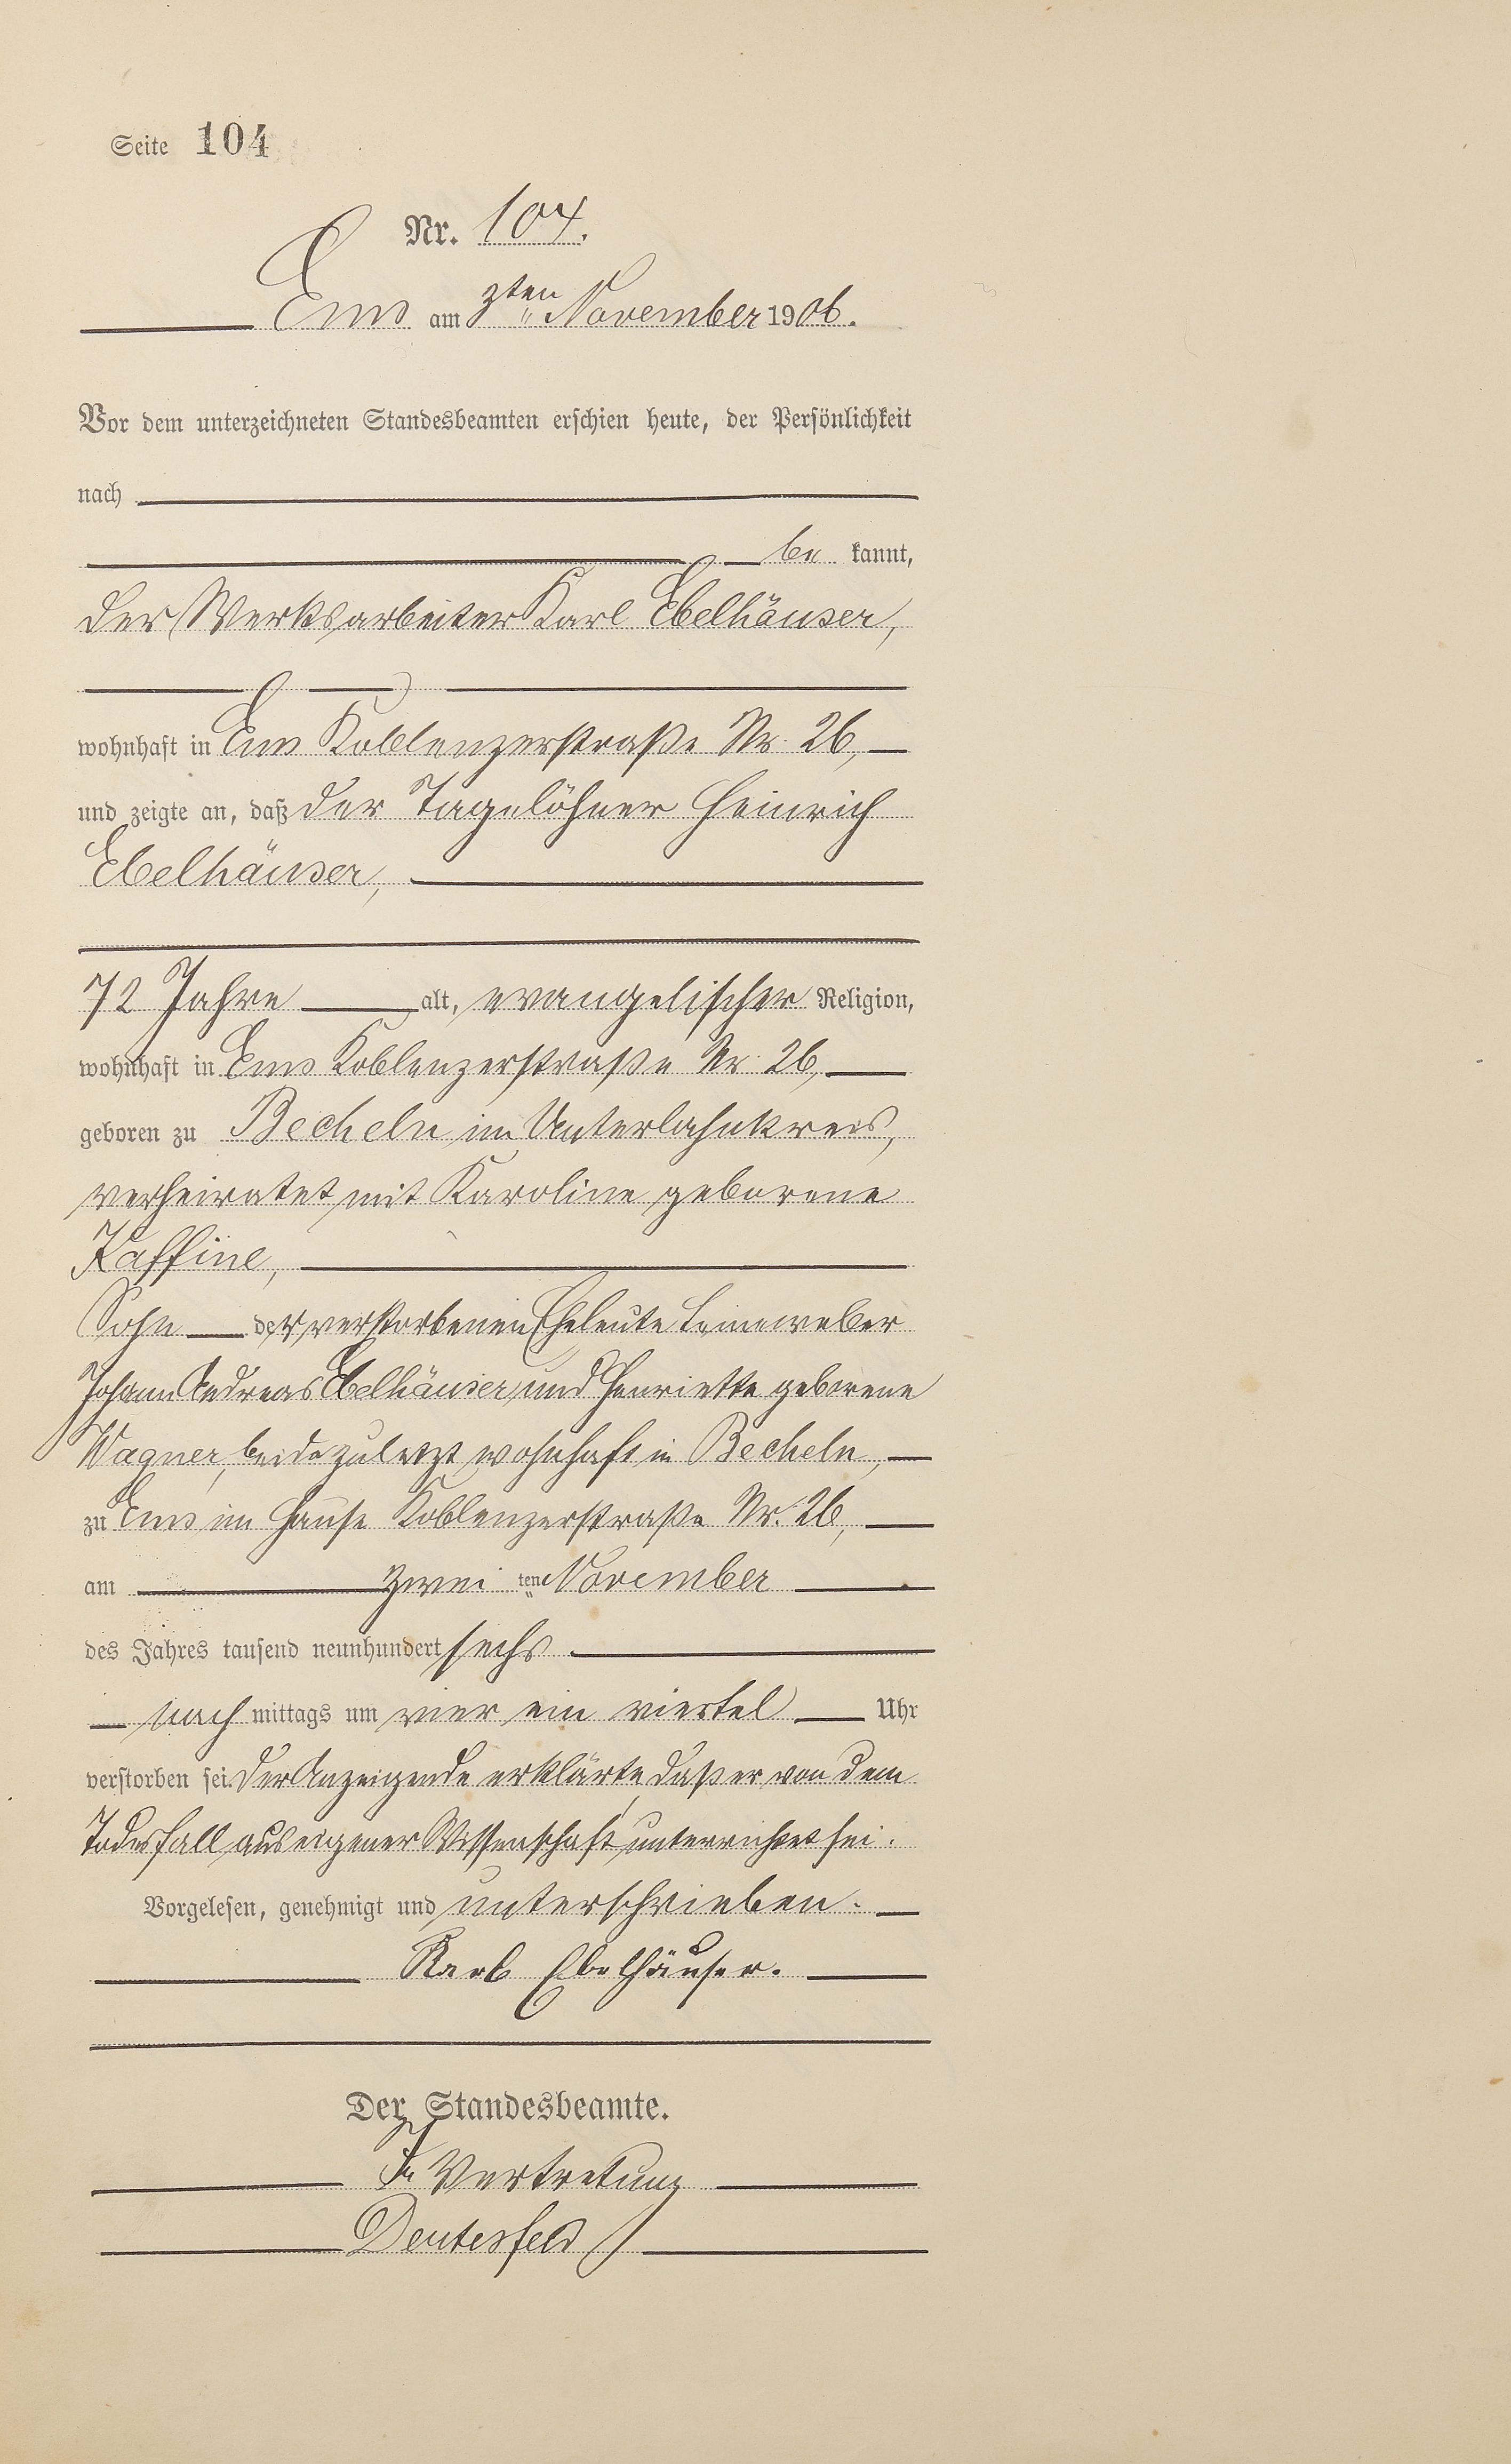 Seite 104
Nr. 104.
Ems am 3ten November 1906.
Vor dem unterzeichneten Standesbeamten erschien heute, der Persönlichkeit
nach
be kannt,
der Werksarbeiter Karl Ebelhäuser,
wohnhaft in Ems Koblenzerstraße Nr. 26,
und zeigte an, daß der Tagelöhner Heinrich
Ebelhäuser,
72 Jahre alt, evangelischer Religion,
wohnhaft in Ems Koblenzerstraße Nr. 26,
geboren zu Becheln im Unterlahnkreis,
verheiratet mit Karoline geborene
Kaffine,
Sohn der verstorbenen Eheleute Leineweber
Johann Andreas Ebelhäuser und Henriette geborene
Wagner, beide zuletzt wohnhaft in Becheln,
zu Ems im Hause Koblenzerstraße Nr. 26,
am zwei ten November
des Jahres tausend neunhundert sechs
nach mittags um vier ein viertel Uhr
verstorben sei. Der Anzeigende erklärte, daß er von dem
Todesfall aus eigener Wissenschaft unterrichtet sei.
Vorgelesen, genehmigt und unterschrieben.
Karl Ebelhäuser.
Der Standesbeamte.
In Vertretung